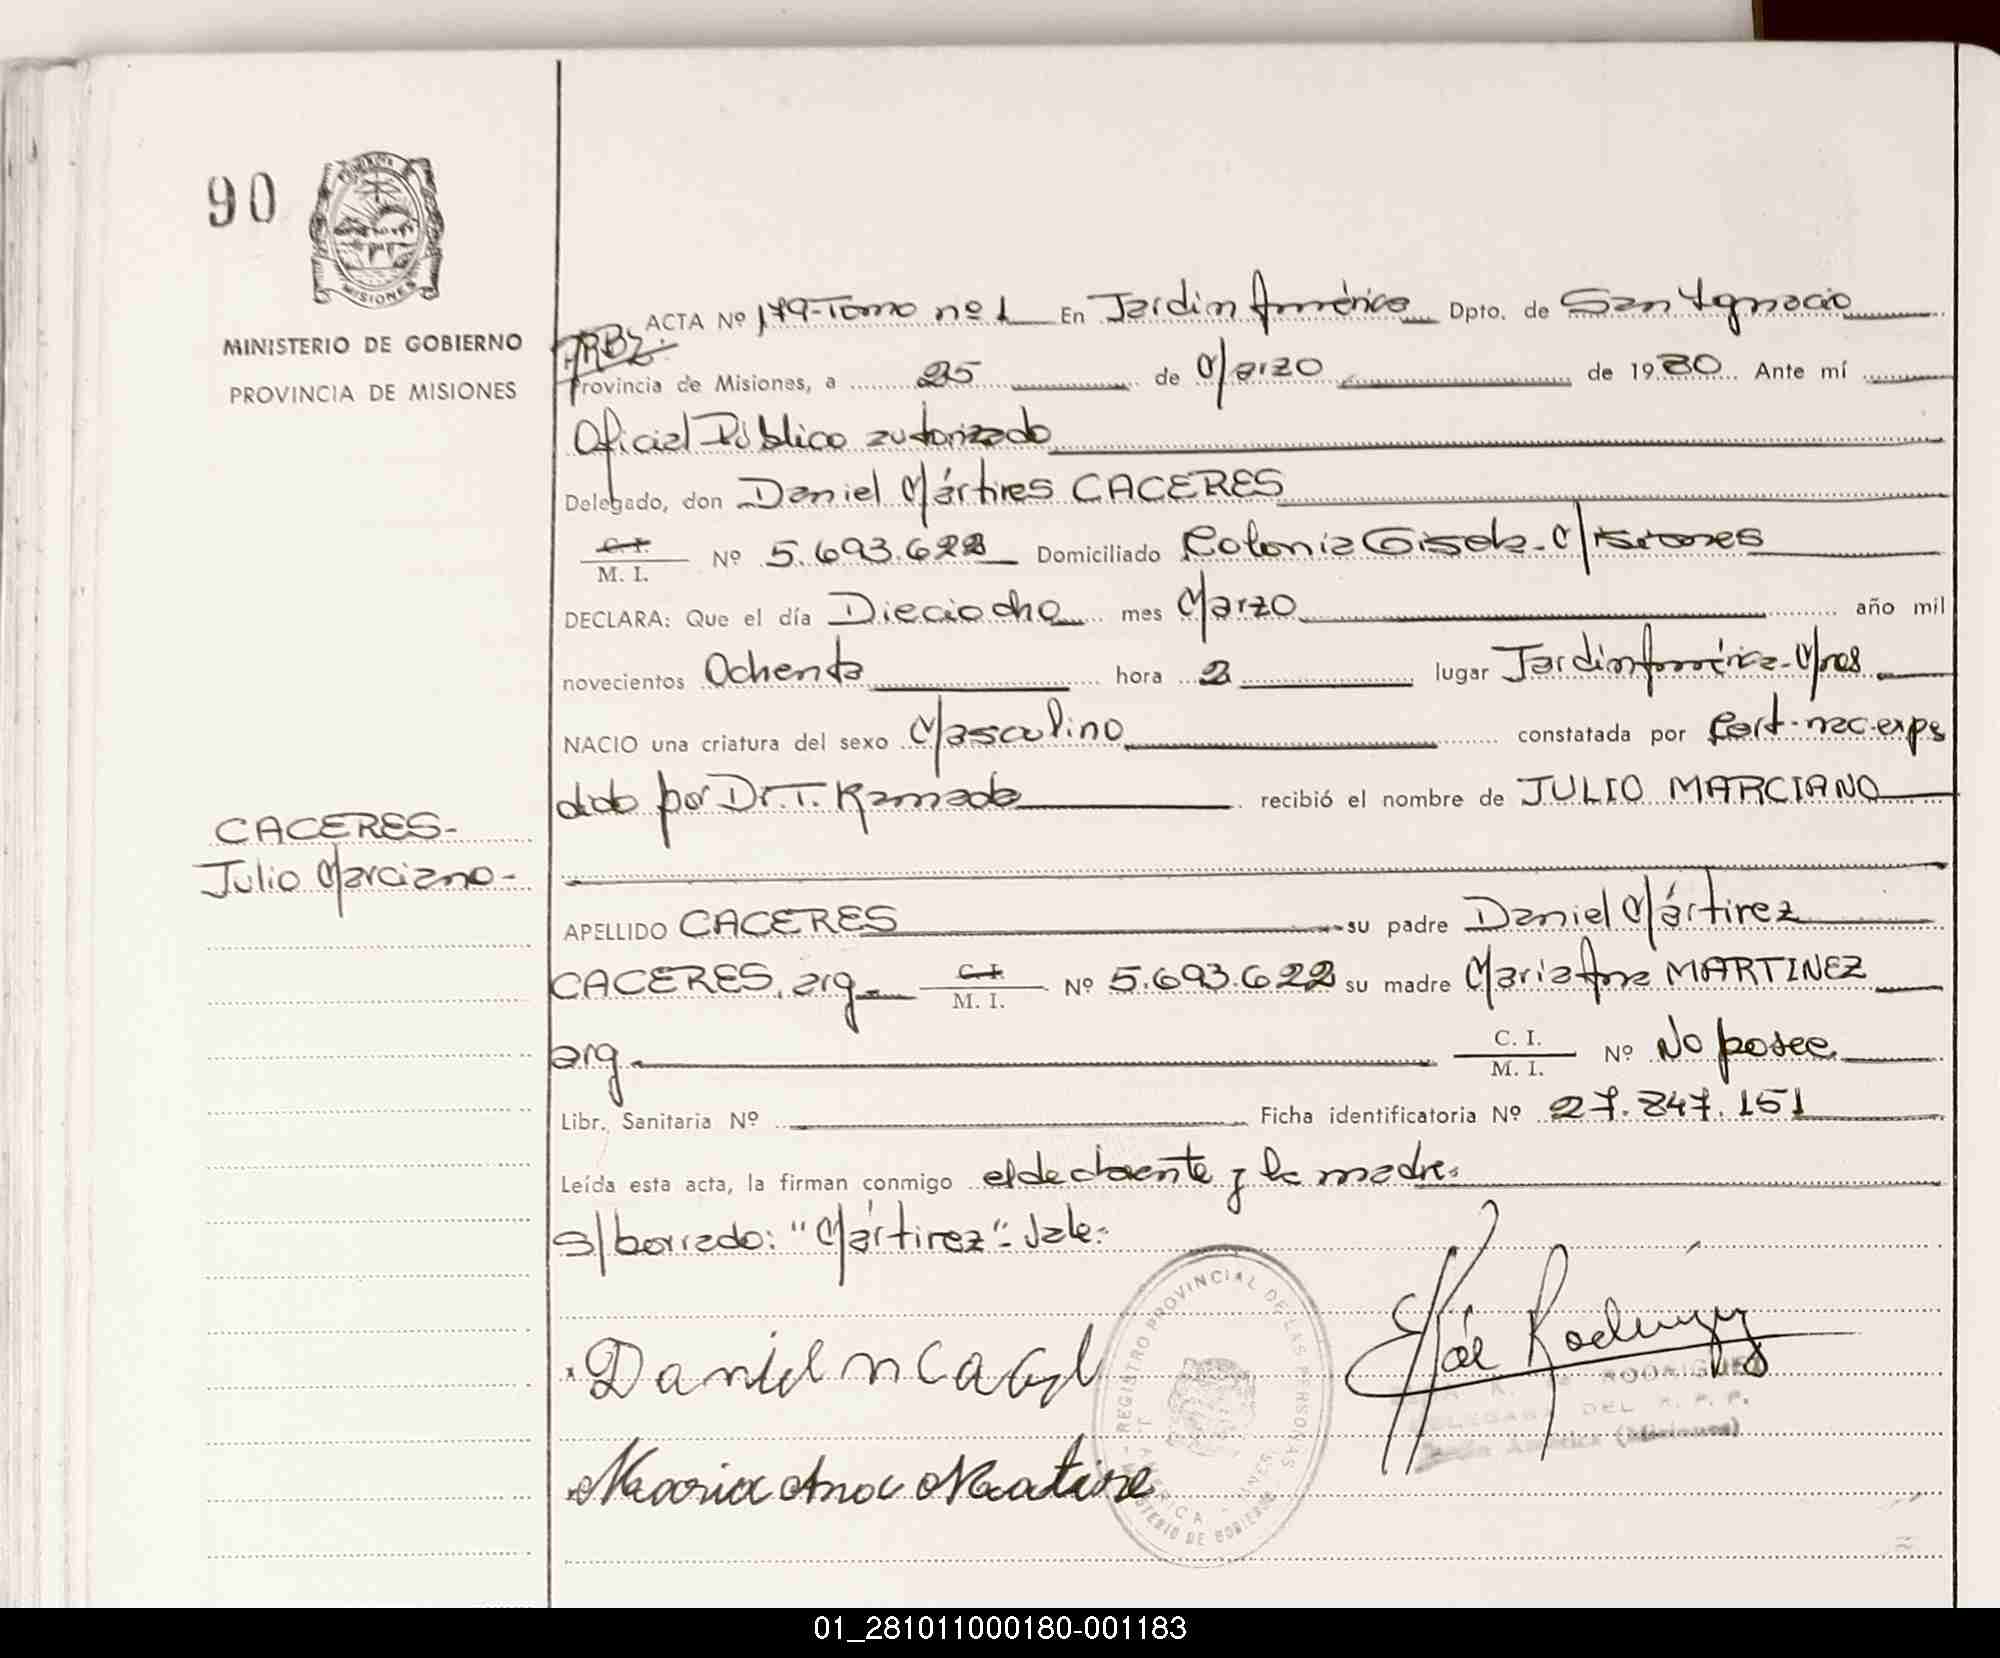 90
MISIONES
MINISTERIO DE GOBIERNO
PROVINCIA DE MISIONES
CACERES-
Julio Marciano-
ACTA Nº 179-Tomo nº 1 En Jardín América Dpto. de San Ignacio
Provincia de Misiones, a 25 de Marzo de 1980 Ante mí
Oficial Público autorizado
Delegado, don Daniel Mártires CACERES
C.I. / M. I. Nº 5.693.622 Domiciliado Colonia Gisela-Misiones
DECLARA: Que el día Dieciocho mes Marzo año mil
novecientos Ochenta hora 2 lugar Jardín América-Mnes
NACIO una criatura del sexo Masculino constatada por Cert-nac-expe
dido por Dr. T. Kamada recibió el nombre de JULIO MARCIANO
APELLIDO CACERES su padre Daniel Mártirez
CACERES, arg C.I. / M. I. Nº 5.693.622 su madre Maria Ana MARTINEZ
arg C. I. / M. I. Nº No posee
Libr. Sanitaria Nº Ficha identificatoria Nº 27.847.151
Leída esta acta, la firman conmigo el declarente y la madre.
s/borrado: "Mártirez"- Vale-
REGISTRO PROVINCIAL DE LAS PERSONAS
J. AMERICA - MNES
MINISTERIO DE GOBIERNO
RODRIGUEZ
DELEGADA DEL R. P. P.
Jardín América (Misiones)
Daniel M
Maria Ana Martine
01_281011000180-001183